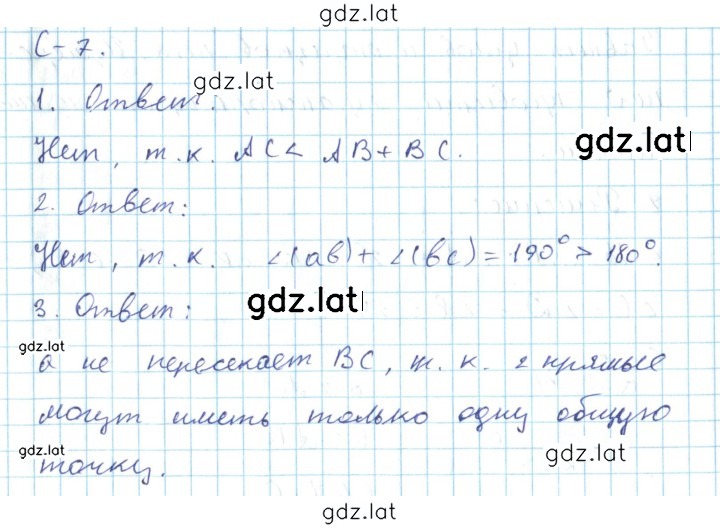 gdz.lat
С-7.
gdz.lat
1. Ответ.
Нет, т.к. AC < AB + BC.
gdz.lat
2. Ответ:
Нет, т.к. ∠(ab) + ∠(bc) = 190° > 180°.
3. Ответ:
gdz.lat
gdz.lat
a не пересекает BC, т.к. 2 прямые
могут иметь только одну общую
gdz.lat
gdz.lat
точку.
gdz.lat